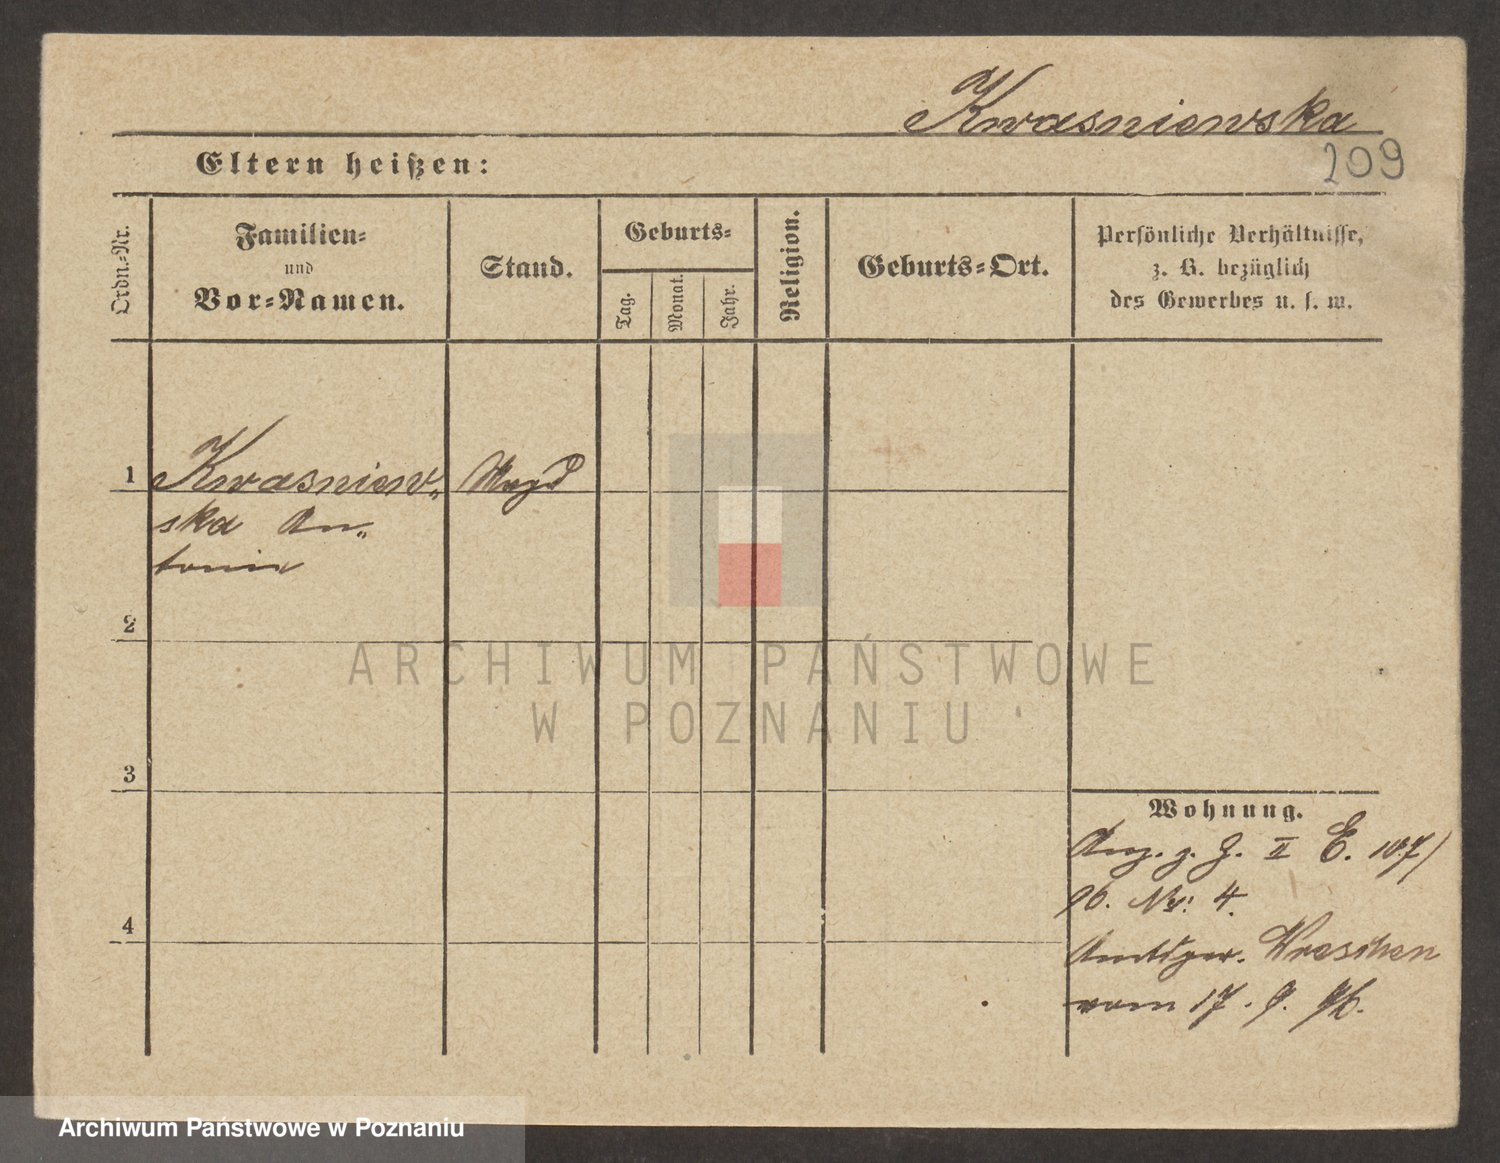 Kwasniewska
209
Eltern heißen:
Ordn.-Nr.
Familien-
und
Vor-Namen.
Stand.
Geburts-
Tag.
Monat.
Jahr.
Religion.
Geburts-Ort.
Persönliche Verhältnisse,
z. B. bezüglich
des Gewerbes u. s. w.
1 Kwasniew- Magd
ska An-
tonie
2
3
4
Wohnung.
Anz. z. H. II E. 107/
96. Nr: 4.
Amtsger. Wreschen
vom 17. 9. 96.
ARCHIWUM PAŃSTWOWE
W POZNANIU
Archiwum Państwowe w Poznaniu